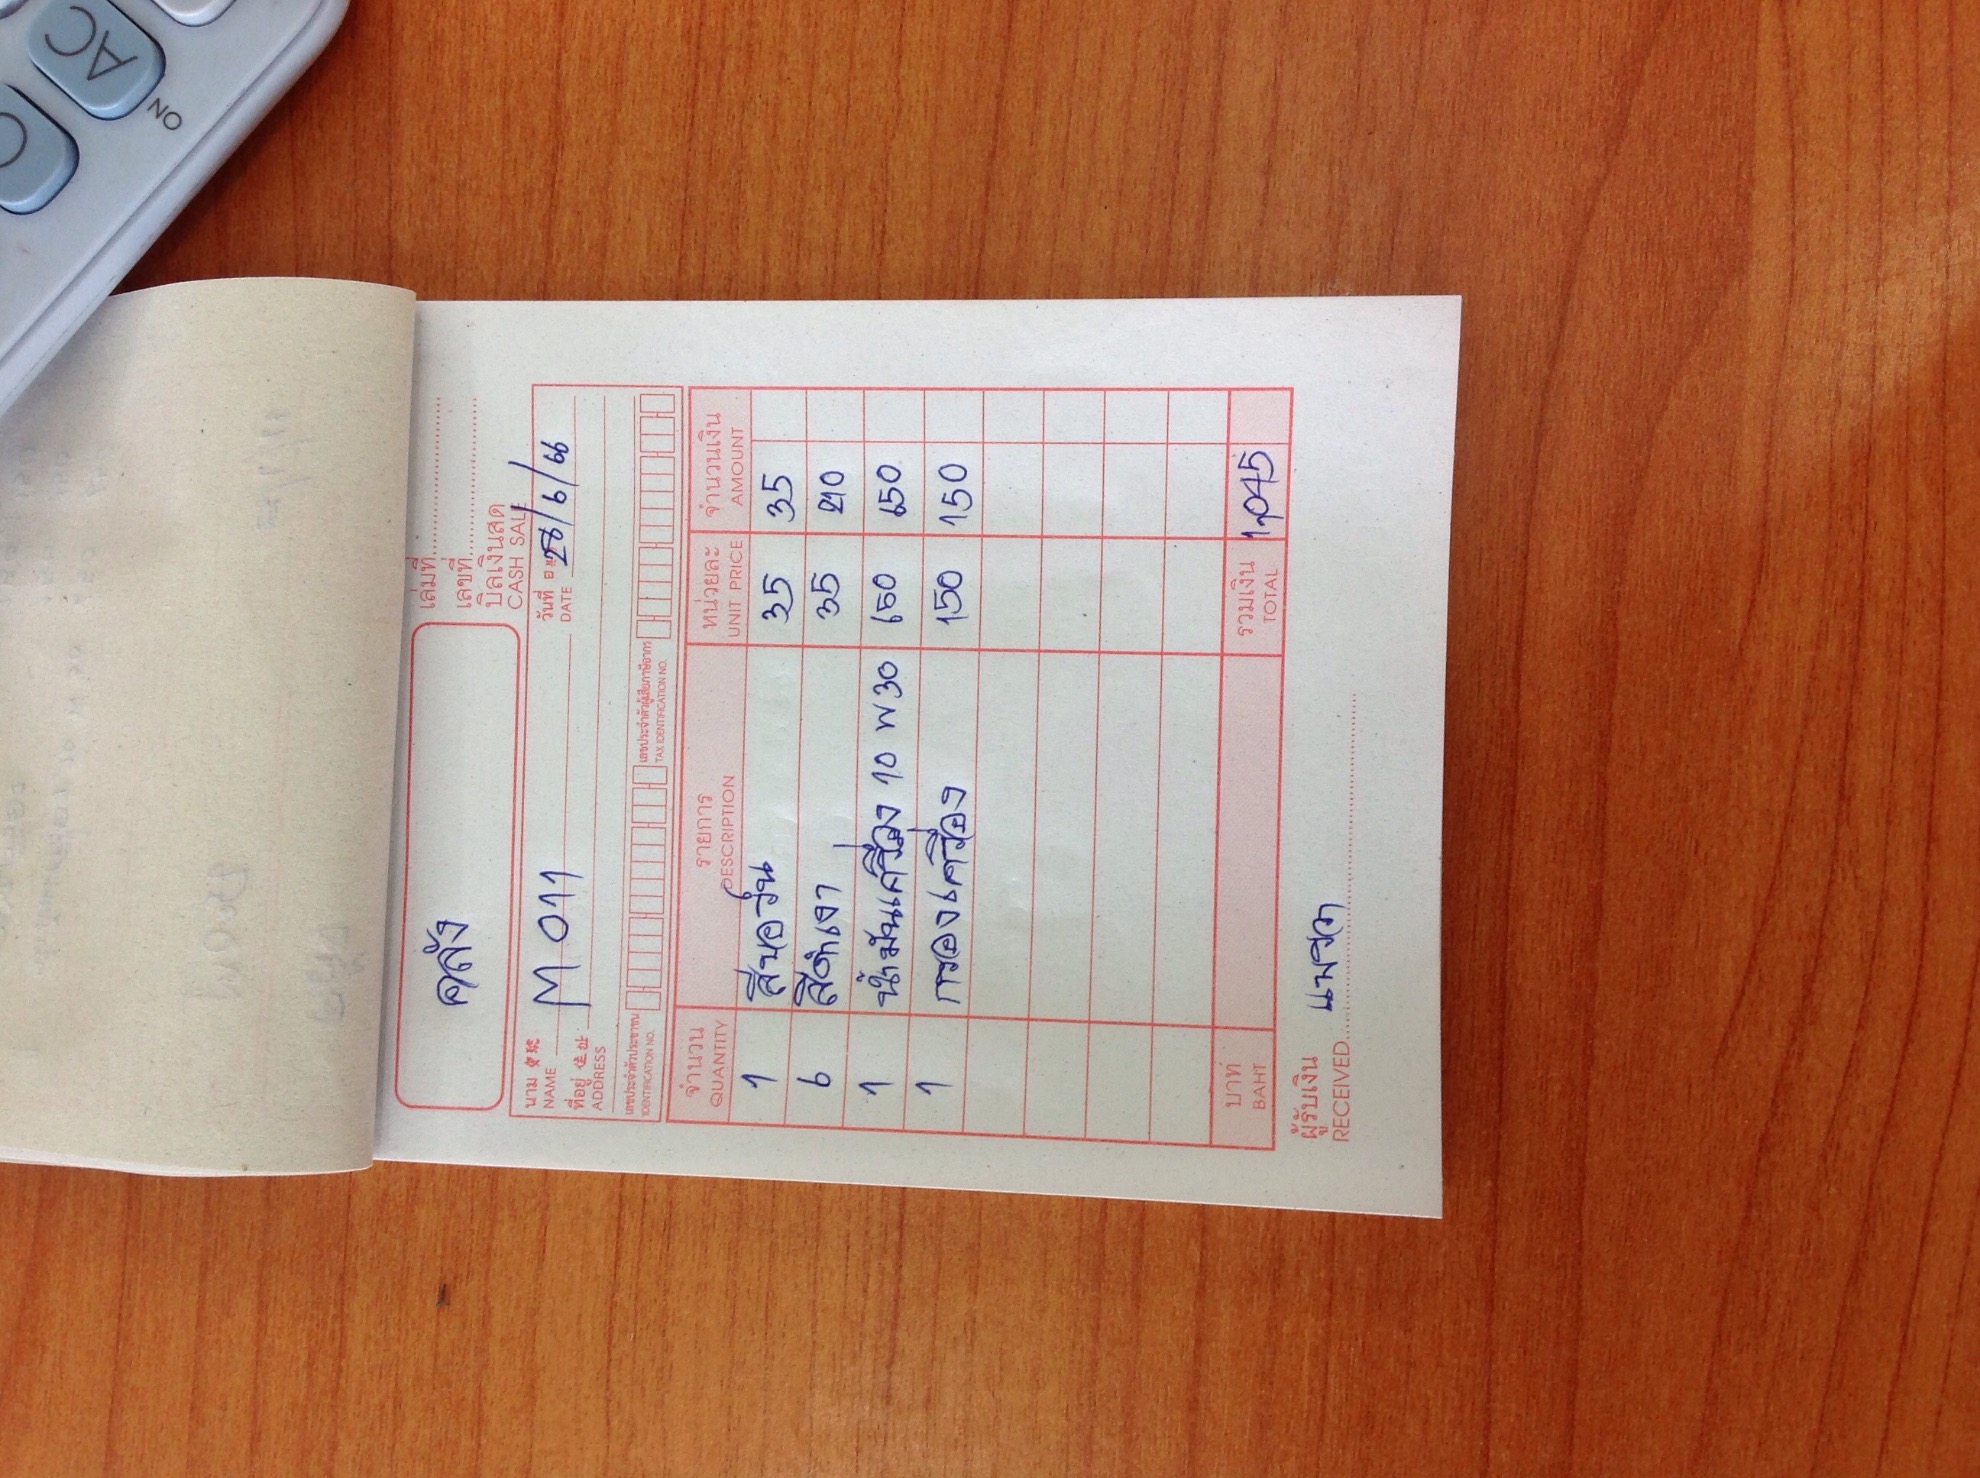 AC
ON
คลัง
เล่มที่
เลขที่
บิลเงินสด
CASH SALE
นาม
NAME
M 011
วันที่
DATE
28/6/66
ที่อยู่ 住址
ADDRESS
เลขประจำตัวประชาชน
IDENTIFICATION NO.
เลขประจำตัวผู้เสียภาษีอากร
TAX IDENTIFICATION NO.
จำนวน รายการ หน่วยละ จำนวนเงิน
QUANTITY DESCRIPTION UNIT PRICE AMOUNT
1 35 35
6 สีดำเงา 35 210
1 น้ำมันเครื่อง 10 W 30 650 650
1 กรองเครื่อง 150 150
บาท รวมเงิน
BAHT TOTAL 1,045
ผู้รับเงิน
RECEIVED